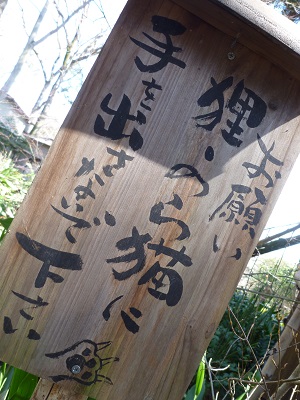 お願い
狸・のら猫に
手を出さないで
下さい